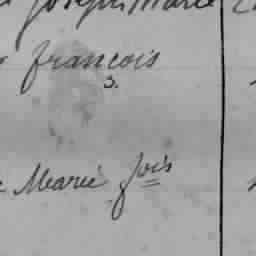 Joseph Marie
françois
3.
Marie fois